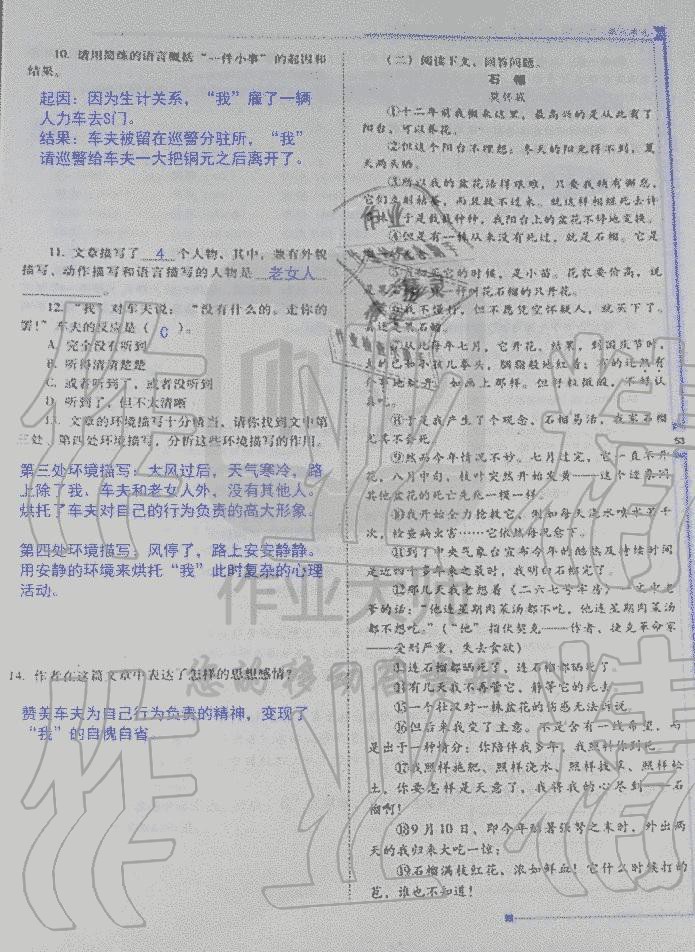 第六单元
10. 请用简练的语言概括“一件小事”的起因和
结果。
起因：因为生计关系，“我”雇了一辆
人力车去S门。
结果：车夫被留在巡警分驻所，“我”
请巡警给车夫一大把铜元之后离开了。
11. 文章描写了 4 个人物，其中，兼有外貌
描写、动作描写和语言描写的人物是 老女人
。
12. “我”对车夫说：“没有什么的。走你的
罢！”车夫的反应是（ C ）。
A. 完全没有听到
B. 听得清清楚楚
C. 或者听到了，或者没听到
D. 听到了，但不太清晰
13. 文章的环境描写十分精当，请你找到文中第
三处、第四处环境描写，分析这些环境描写的作用。
第三处环境描写：大风过后，天气寒冷，路
上除了我、车夫和老女人外，没有其他人。
烘托了车夫对自己的行为负责的高大形象。
第四处环境描写：风停了，路上安安静静。
用安静的环境来烘托“我”此时复杂的心理
活动。
14. 作者在这篇文章中表达了怎样的思想感情？
赞美车夫为自己行为负责的精神，变现了
“我”的自愧自省。
（二）阅读下文，回答问题。
石 榴
莫怀戚
①十二年前我搬来这里，最高兴的是从此有了
阳台，可以养花。
②但这个阳台不理想：冬天的阳光得不到，夏
天两头晒。
③所以我的盆花活得艰难，只要我稍有懈怠，
它们立刻枯萎，而且救不过来。就这样相继死去许
于是栽栽种种，我阳台上的盆花不停地变换。
④但是有一株从来没有死过，就是石榴。它是
它的时候，是小苗。花农要价高，说
叫花石榴的只开花。
我不懂行，但不愿凭空怀疑人，就买下了。
是石榴。
⑦从此每年七月，它开花，结果，到国庆节时，
大的已如小孩儿拳头，胭脂般地红着；有的还煞有
介事地绽开，如画上那样。但籽粒微微，不好认
真吃。
⑧于是我产生了个观念，石榴易活，我家石榴
尤其不会死。
⑨然而今年情况不妙。七月过完，它一直不开
花，八月中旬，枝叶突然开始发黄——这个过程同
其他盆花的死亡先兆一模一样。
⑩我开始全力抢救它，例如每天浇水喷水若干
次，检查病虫害……它依然每况愈下。
⑪到了中央气象台宣布今年的酷热及持续时间
是近四个多年来之最时，我明白石榴完了。
⑫那几天我老想着《二六七号牢房》一文中老
爹的话：“他连星期肉菜汤都不吃，他连星期肉菜汤
都不吃。”（“他”指伏契克——作者，捷克革命家
——受刑严重，失去食欲）
⑬连石榴都晒死了，连石榴都晒死了……
⑭有几天我不再管它，静等它的死去
⑮一个壮汉对一株盆花的伤感无法诉说。
⑯但后来我变了主意。不是含有一线希望，而
是出于一种情分：你陪伴我多年，我照料你到死。
⑰我照样施肥、照样浇水、照样拔草、照样松
土，你要怎样是天意了，我得我的心尽到——石
榴啊！
⑱9月10日，即今年酷暑强弩之末时，外出两
天的我归来大吃一惊：
⑲石榴满枝红花，浓如鲜血！它什么时候打的
苞，谁也不知道！
53
作业大师
您的移动
作业精